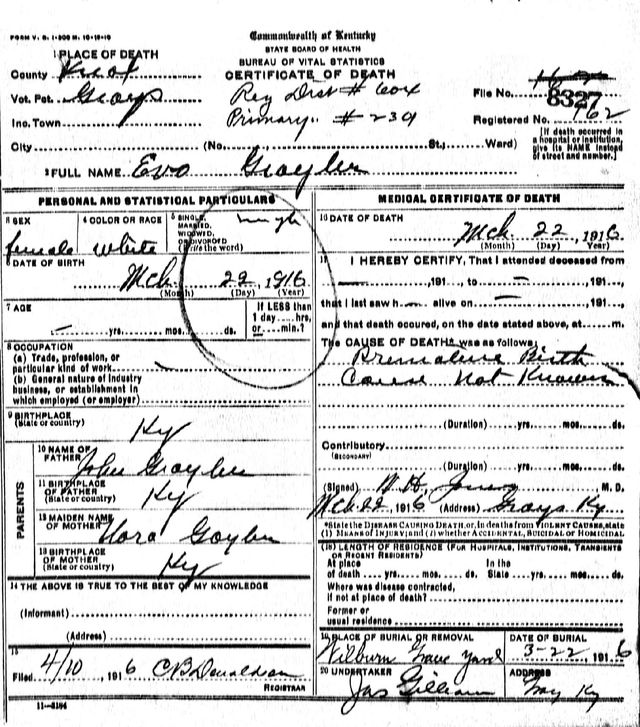 FORM V. S. 1-300 M. 10-19-10
Commonwealth of Kentucky
STATE BOARD OF HEALTH
BUREAU OF VITAL STATISTICS
CERTIFICATE OF DEATH
1 PLACE OF DEATH
County Knox
Vot. Pct. Grays
Inc. Town
City (No. St.; Ward)
Reg Dist # 604
Primary " # 234
File No. 8327
Registered No. 162
[If death occurred in a hospital or institution, give its NAME instead of street and number.]
2 FULL NAME Evo
PERSONAL AND STATISTICAL PARTICULARS
3 SEX
female
4 COLOR OR RACE
White
5 SINGLE, MARRIED, WIDOWED, OR DIVORCED
(Write the word)
6 DATE OF BIRTH
Mch 22, 1916
(Month) (Day) (Year)
7 AGE
yrs. mos. ds.
If LESS than
1 day hrs,
or min.?
8 OCCUPATION
(a) Trade, profession, or
particular kind of work
(b) General nature of industry
business, or establishment in
which employed (or employer)
9 BIRTHPLACE
(State or country)
Ky
PARENTS
10 NAME OF
FATHER
John
11 BIRTHPLACE
OF FATHER
(State or country)
Ky
12 MAIDEN NAME
OF MOTHER
13 BIRTHPLACE
OF MOTHER
(State or country)
Ky
14 THE ABOVE IS TRUE TO THE BEST OF MY KNOWLEDGE
(Informant)
(Address)
15
Filed 4/10, 1916 C B Donaldson
REGISTRAR
11-3184
MEDICAL CERTIFICATE OF DEATH
16 DATE OF DEATH
Mch 22, 1916
(Month) (Day) (Year)
17 I HEREBY CERTIFY, That I attended deceased from
, 191 , to , 191 ,
that I last saw h alive on , 191 ,
and that death occured, on the date stated above, at m.
The CAUSE OF DEATH* was as follows:
Premature Birth
Cause Not Known
(Duration) yrs. mos. ds.
Contributory
(SECONDARY)
(Duration) yrs. mos. ds.
(Signed) M. D.
Mch 22, 1916 (Address) Grays Ky
*State the DISEASE CAUSING DEATH, or, in deaths from VIOLENT CAUSES, state
(1) MEANS OF INJURY; and (2) whether ACCIDENTAL, SUICIDAL or HOMICIDAL
(18) LENGTH OF RESIDENCE (FOR HOSPITALS, INSTITUTIONS, TRANSIENTS
OR RECENT RESIDENTS)
At place
of death yrs. mos. ds.
In the
State yrs. mos. ds.
Where was disease contracted,
if not at place of death?
Former or
usual residence
19 PLACE OF BURIAL OR REMOVAL
Wilburn Grave Yard
DATE OF BURIAL
3-22, 1916
20 UNDERTAKER
Jas Gilliam
ADDRESS
Gray Ky